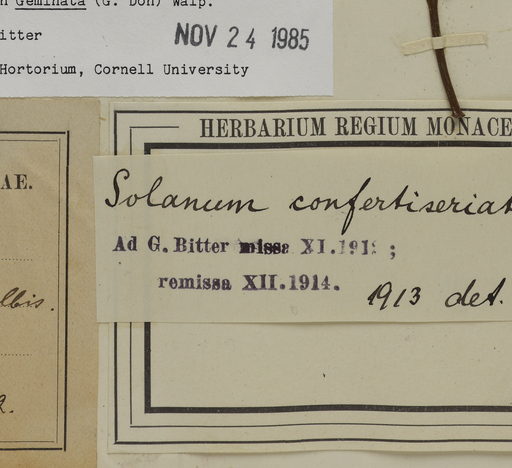 Geminata (G. Don) Walp.
itter
NOV 24 1985
Hortorium, Cornell University
HERBARIUM REGIUM MONACE
AE.
Solanum confertiseriat
Ad G. Bitter missa XI.191 ;
remissa XII.1914.
1913 det.
lbis.